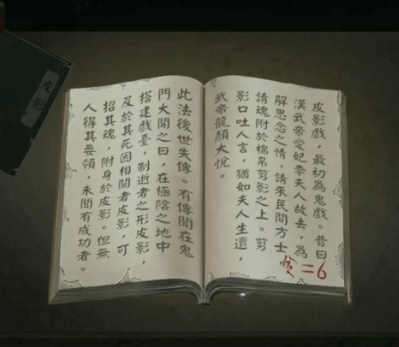 皮影戲，最初為鬼戲。昔日
漢武帝愛妃李夫人故去，為
解思念之情，請來民間方士
請魂附於綿帛剪影之上。剪
影口吐人言，猶如夫人生還，
武帝龍顏大悅。
=6
此法後世失傳。有傳聞在鬼
門大開之日，在極陰之地中
搭建戲臺，制逝者之形皮影，
及於其死因相關者皮影，可
招其魂，附身於皮影。但無
人得其要領，未聞有成功者。
皮影